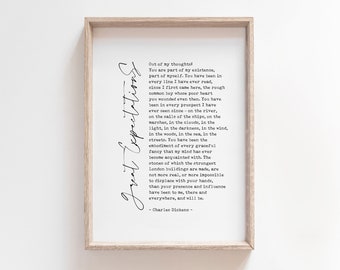 Great Expectations
Out of my thoughts!
You are part of my existence,
part of myself. You have been in
every line I have ever read,
since I first came here, the rough
common boy whose poor heart
you wounded even then. You have
been in every prospect I have
ever seen since – on the river,
on the sails of the ships, on the
marshes, in the clouds, in the
light, in the darkness, in the wind,
in the woods, in the sea, in the
streets. You have been the
embodiment of every graceful
fancy that my mind has ever
become acquainted with. The
stones of which the strongest
London buildings are made, are
not more real, or more impossible
to displace with your hands,
than your presence and influence
have been to me, there and
everywhere, and will be.
- Charles Dickens -